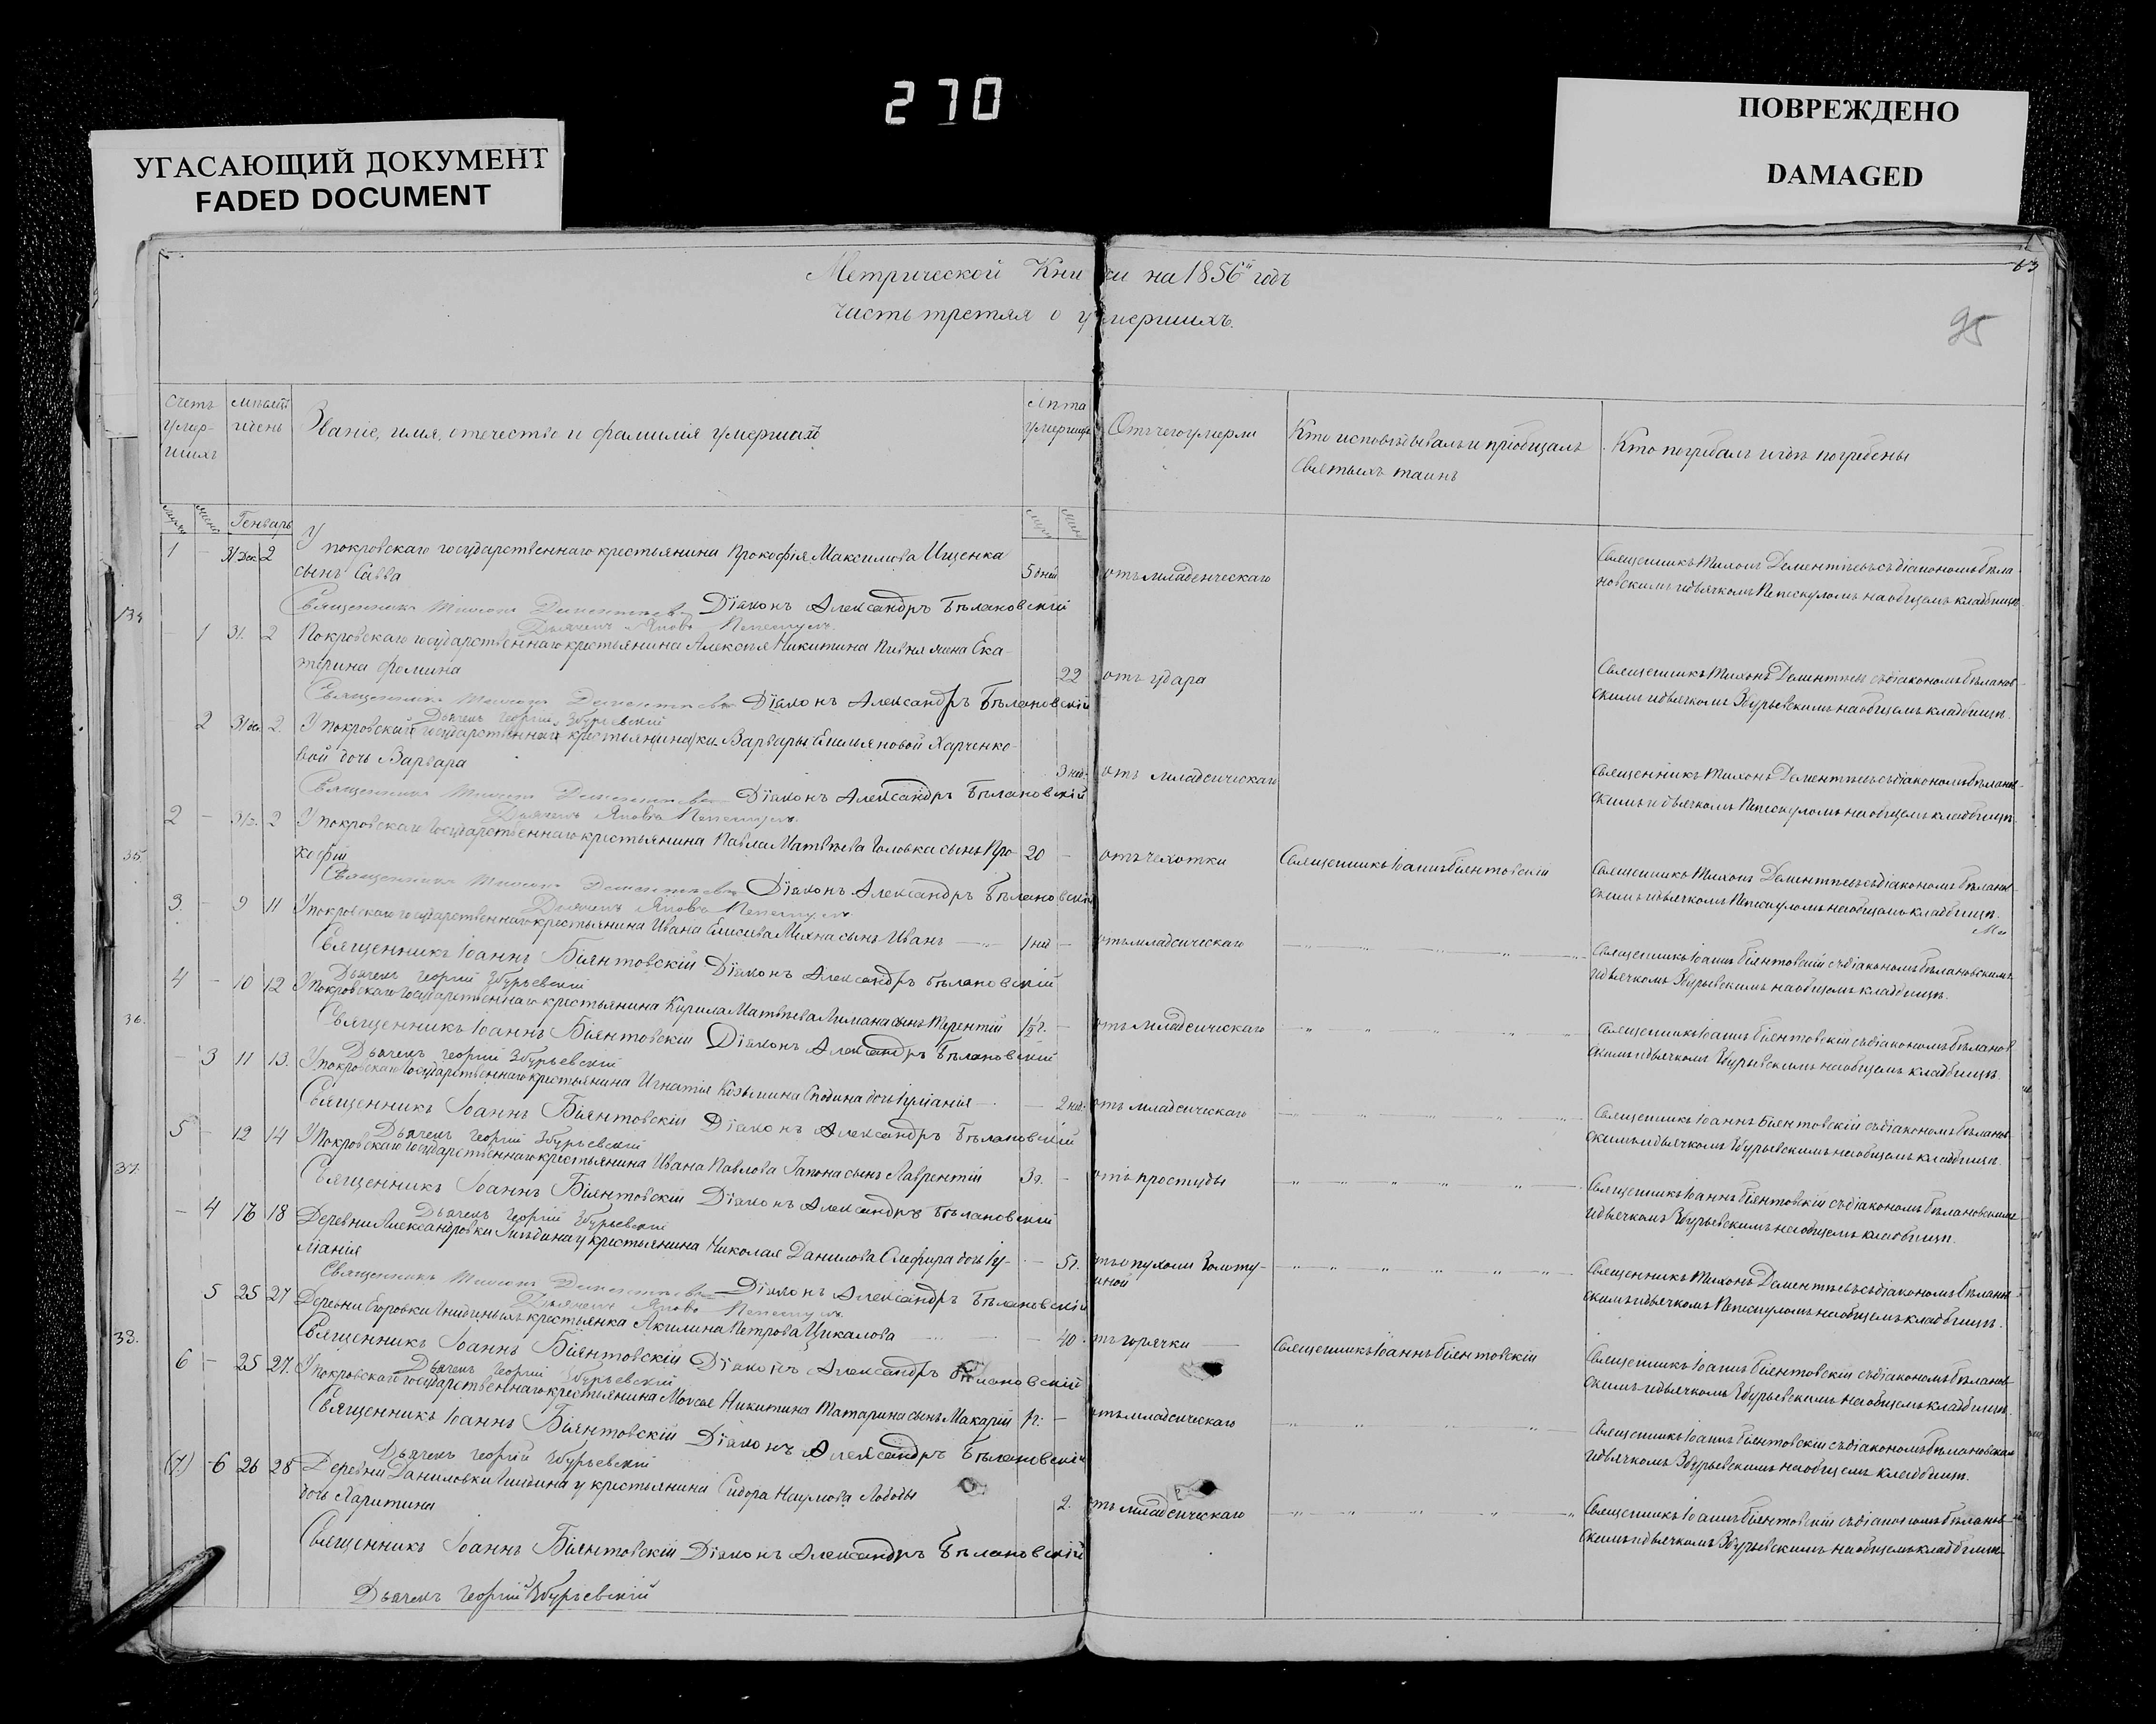 270
УГАСАЮЩИЙ ДОКУМЕНТ
FADED DOCUMENT
ПОВРЕЖДЕНО
DAMAGED
63
95
Метрической Книги на 1856й годъ
Часть третяя о умершихъ.
Счетъ умер- шихъ
мѣсяцъ и день
Званіе, имя, отечество и фамилія умершихъ
Лѣта умершихъ
Отъ чего умерли
Кто исповѣдывалъ и пріобщалъ святыхъ таинъ
Кто погребалъ и гдѣ погребены
Генварь
1 - 31 Дек. 2 У покровскаго государственнаго крестьянина Прокофія Максимова Ищенка
сынъ Савва 5 дней отъ младенческаго
Священникъ Тихонъ Дементьевъ съ діакономъ Бѣла-
новскимъ и дьячкомъ Пепескуломъ на общемъ кладбищѣ.
Священникъ Тихонъ Дементьевъ Діаконъ Александръ Бѣлановскій
134
Дьячекъ Яковъ
- 1 31. 2 Покровскаго государственнаго крестьянина Алексѣя Никитина Пивня жена Ека-
терина Фомина 22 отъ удара
Священникъ Тихонъ Дементьевъ съ діакономъ Бѣланов-
скимъ и дьячкомъ Збурьевскимъ на общемъ кладбищѣ.
Священникъ Тихонъ Дементьевъ Діаконъ Александръ Бѣлановскій
Дьячекъ Георгій Збурьевскій
2 31 дек. 2. У покровской государственной крестьянки Варвары Емельяновой Харченко-
вой дочь Варвара 3 нед. отъ младенческаго
Священникъ Тихонъ Дементьевъ съ діакономъ Бѣланов-
скимъ и дьячкомъ Пепескуломъ на общемъ кладбищѣ.
Священникъ Тихонъ Дементьевъ Діаконъ Александръ Бѣлановскій
Дьячекъ Яковъ
2 - 31 2 У покровскаго государственнаго крестьянина Павла Матвѣева Головка сынъ Про-
кофій 20 - отъ чахотки Священникъ Іоаннъ Біянтовскій
35.
Священникъ Тихонъ Дементьевъ съ діакономъ Бѣланов-
скимъ и дьячкомъ Пепескуломъ на общемъ кладбищѣ.
Священникъ Тихонъ Дементьевъ Діаконъ Александръ Бѣлановскій
Дьячекъ Яковъ
3. - 9 11 У покровскаго государственнаго крестьянина Ивана Елисева Михна сынъ Иванъ 1 нед. - отъ младенческаго
Священникъ Іоаннъ Біянтовскій съ діакономъ Бѣлановскимъ
и дьячкомъ Збурьевскимъ на общемъ кладбищѣ.
Священникъ Іоаннъ Біянтовскій Діаконъ Александръ Бѣлановскій
Дьячекъ Георгій Збурьевскій
4 - 10 12 У покровскаго государственнаго крестьянина Кирила Матвѣева Лимана сынъ Терентій 1½ г. - отъ младенческаго
36.
Священникъ Іоаннъ Біянтовскій съ діакономъ Бѣланов-
скимъ и дьячкомъ Збурьевскимъ на общемъ кладбищѣ.
Священникъ Іоаннъ Біянтовскій Діаконъ Александръ Бѣлановскій
Дьячекъ Георгій Збурьевскій
- 3 11 13. У покровскаго государственнаго крестьянина Игнатія Козьмина дочь Іуліанія - 2 нед. отъ младенческаго
Священникъ Іоаннъ Біянтовскій съ діакономъ Бѣланов-
скимъ и дьячкомъ Збурьевскимъ на общемъ кладбищѣ.
Священникъ Іоаннъ Біянтовскій Діаконъ Александръ Бѣлановскій
Дьячекъ Георгій Збурьевскій
5 - 12 14 У Покровскаго государственнаго крестьянина Ивана Павлова Гапона сынъ Лаврентій 3 г. - отъ простуды
37.
Священникъ Іоаннъ Біянтовскій съ діакономъ Бѣлановскимъ
и дьячкомъ Збурьевскимъ на общемъ кладбищѣ.
Священникъ Іоаннъ Біянтовскій Діаконъ Александръ Бѣлановскій
Дьячекъ Георгій Збурьевскій
- 4 16 18 Деревни Александровки у крестьянина Николая Данилова дочь Іу-
ліанія - 5 г. отъ опухоли золоту-
шной
Священникъ Тихонъ Дементьевъ съ діакономъ Бѣланов-
скимъ и дьячкомъ Пепескуломъ на общемъ кладбищѣ.
Священникъ Тихонъ Дементьевъ Діаконъ Александръ Бѣлановскій
Дьячекъ Яковъ
5 25 27 Деревни Егоровки крестьянка Акилина Петрова Цикалова - 40 отъ горячки Священникъ Іоаннъ Біянтовскій
38.
Священникъ Іоаннъ Біянтовскій съ діакономъ Бѣланов-
скимъ и дьячкомъ Збурьевскимъ на общемъ кладбищѣ.
Священникъ Іоаннъ Біянтовскій Діаконъ Александръ Бѣлановскій
Дьячекъ Георгій Збурьевскій
6 - 25 27. У покровскаго государственнаго крестьянина Моисея Никитина Татарина сынъ Макарій 1 г. - отъ младенческаго
Священникъ Іоаннъ Біянтовскій съ діакономъ Бѣлановскимъ
и дьячкомъ Збурьевскимъ на общемъ кладбищѣ.
Священникъ Іоаннъ Біянтовскій Діаконъ Александръ Бѣлановскій
Дьячекъ Георгій Збурьевскій
(7.) 6 26 28 Деревни Даниловки у крестьянина Сидора Наумова Лободы
дочь Харитина 2. отъ младенческаго
Священникъ Іоаннъ Біянтовскій съ діакономъ Бѣланов-
скимъ и дьячкомъ Збурьевскимъ на общемъ кладбищѣ
Священникъ Іоаннъ Біянтовскій Діаконъ Александръ Бѣлановскій
Дьячекъ Георгій Збурьевскій